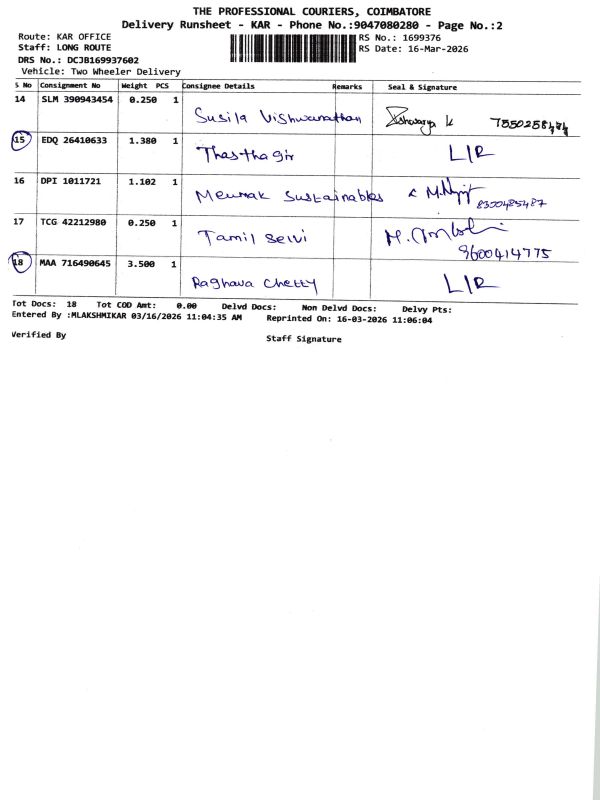 THE PROFESSIONAL COURIERS, COIMBATORE
Delivery Runsheet - KAR - Phone No.:9047080280 - Page No.:2
Route: KAR OFFICE
RS No.: 1699376
Staff: LONG ROUTE
RS Date: 16-Mar-2026
DRS No.: DCJB169937602
Vehicle: Two Wheeler Delivery
S No Consignment No Weight PCS Consignee Details Remarks Seal & Signature
14 SLM 390943454 0.250 1 Susila Vishwanathan
15 EDQ 26410633 1.380 1 Thasthagir L/R
16 DPI 1011721 1.102 1 Meumak Sustainables 8300485487
17 TCG 42212980 0.250 1 Tamil Selvi 9600414775
18 MAA 716490645 3.500 1 Raghava Chetty L/R
Tot Docs: 18 Tot COD Amt: 0.00 Delvd Docs: Non Delvd Docs: Delvy Pts:
Entered By :MLAKSHMIKAR 03/16/2026 11:04:35 AM Reprinted On: 16-03-2026 11:06:04
Verified By
Staff Signature